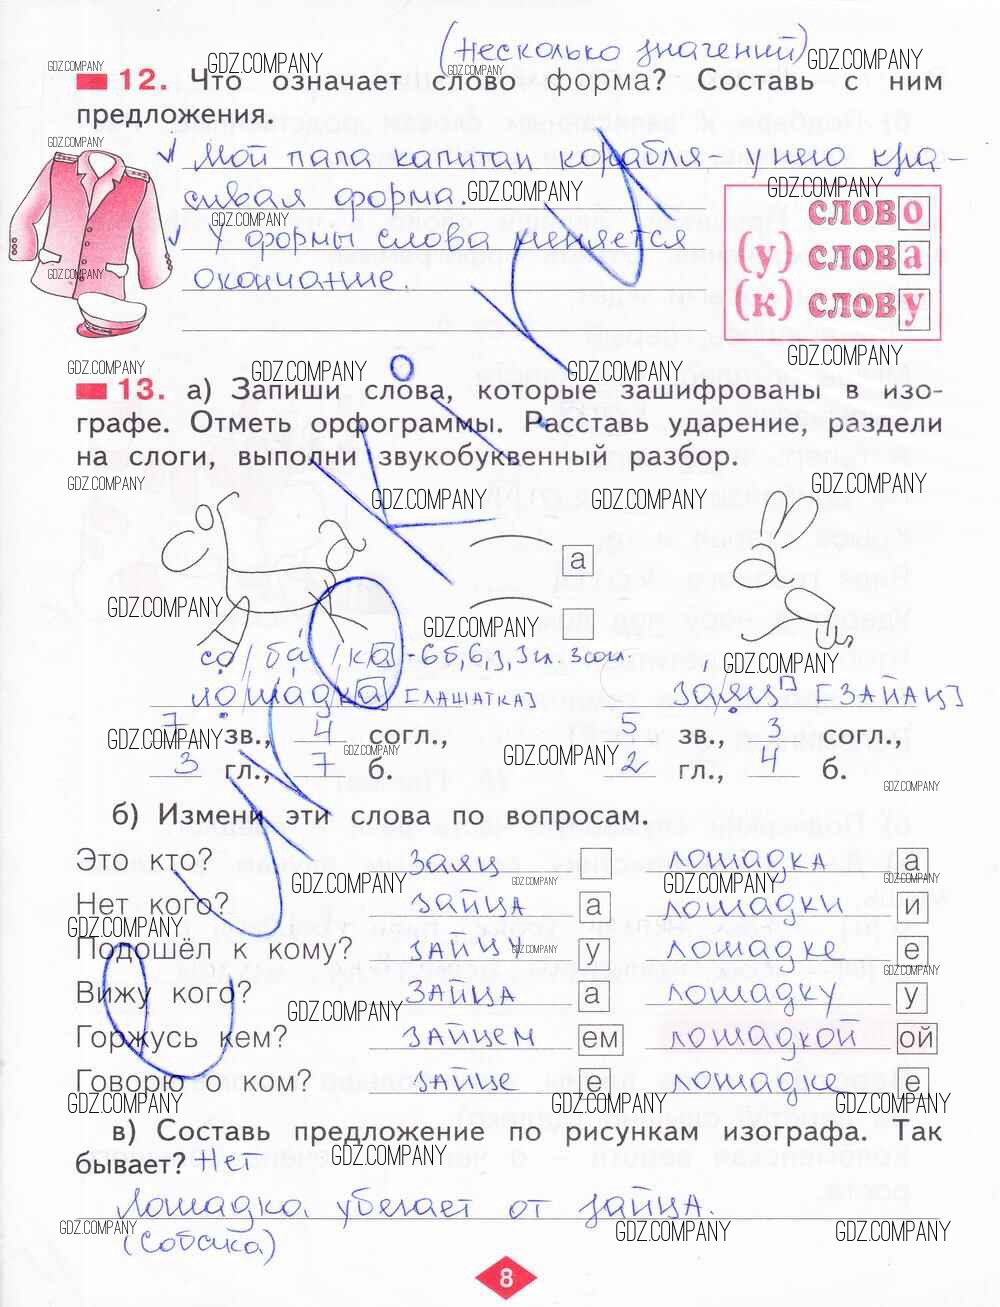 (несколько значений)
12. Что означает слово форма? Составь с ним
предложения.
Мой папа капитан корабля у него кра-
сивая форма.
У формы слова меняется
окончание.
слово
(у) слова
(к) слову
13. а) Запиши слова, которые зашифрованы в изо-
графе. Отметь орфограммы. Расставь ударение, раздели
на слоги, выполни звукобуквенный разбор.
а
со/ба/ка - 6 б, 6 з, 3 гл. 3 согл.
лошадка [ЛАШАТКА] заяц [ЗАЙАЦ]
7 зв., 4 согл., 5 зв., 3 согл.,
3 гл., 7 б. 2 гл., 4 б.
б) Измени эти слова по вопросам.
Это кто? заяц лошадка а
Нет кого? зайца а лошадки и
Подошёл к кому? зайцу у лошадке е
Вижу кого? зайца а лошадку у
Горжусь кем? зайцем ем лошадкой ой
Говорю о ком? зайце е лошадке е
в) Составь предложение по рисункам изографа. Так
бывает? Нет
Лошадка убегает от зайца.
(Собака)
8
GDZ.COMPANY